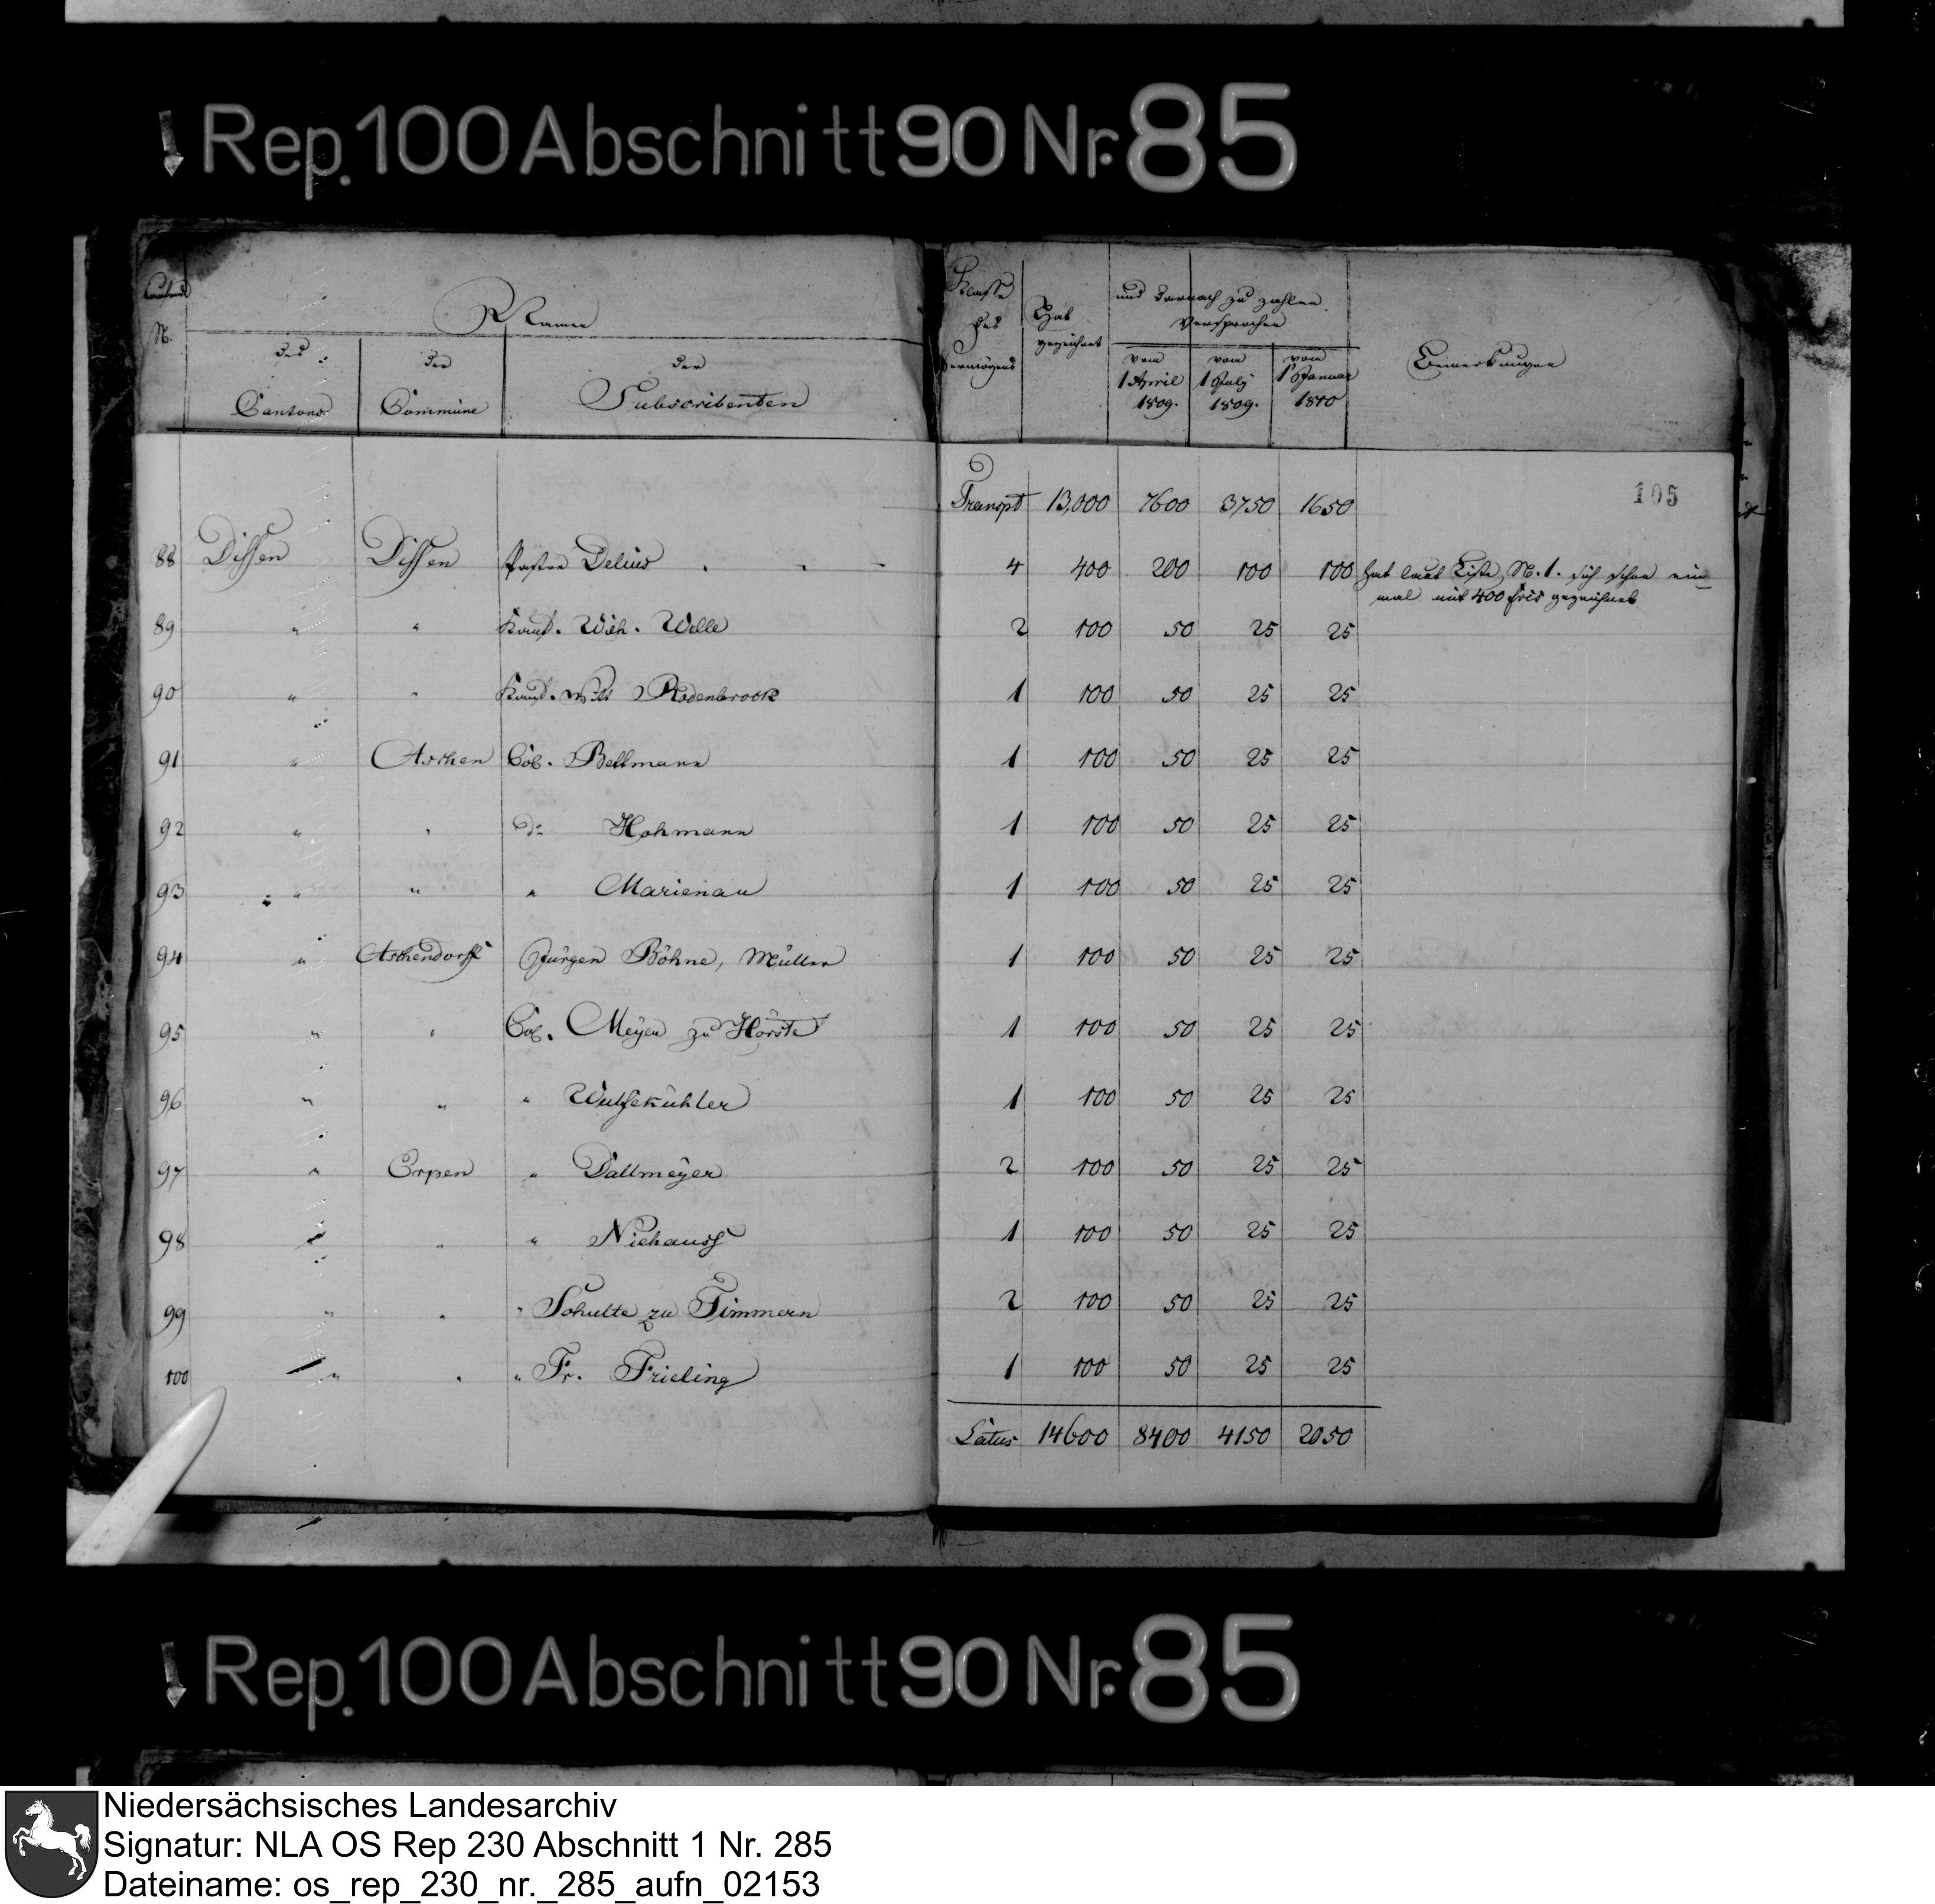 Rep. 100 Abschnitt 90 Nr. 85
Laufende N. Namen Klasse des Vermögens Hat gezeichnet und darnach zu zahlen versprochen Bemerkungen
des Cantons der Commüne der Subscribenten vom 1 April 1809. vom 1 July 1809. vom 1 Januar 1810
105
Transpt 13,000 7600 3750 1650
88 Dissen Dissen Pastor Delius 4 400 200 100 100 hat laut Liste N. 1. sich schon ein-
mal mit 400 frcs gezeichnet
89 " " Kauf. Wilh. Welle 2 100 50 25 25
90 " " Kauf. Rodenbrock 1 100 50 25 25
91 " Aschen Col. Bellmann 1 100 50 25 25
92 " " do Hohmann 1 100 50 25 25
93 " " " Marienau 1 100 50 25 25
94 " Aschendorff Jürgen Böhne, Müller 1 100 50 25 25
95 " " Col. Meyer zu Hörste 1 100 50 25 25
96 " " " Wulfekühler 1 100 50 25 25
97 " Erpen " Dallmeyer 2 100 50 25 25
98 " " " Niehauss 1 100 50 25 25
99 " " " Schulte zu Timmern 2 100 50 25 25
100 " " " Fr. Frieling 1 100 50 25 25
Latus 14600 8400 4150 2050
Rep. 100 Abschnitt 90 Nr. 85
Niedersächsisches Landesarchiv
Signatur: NLA OS Rep 230 Abschnitt 1 Nr. 285
Dateiname: os_rep_230_nr._285_aufn_02153